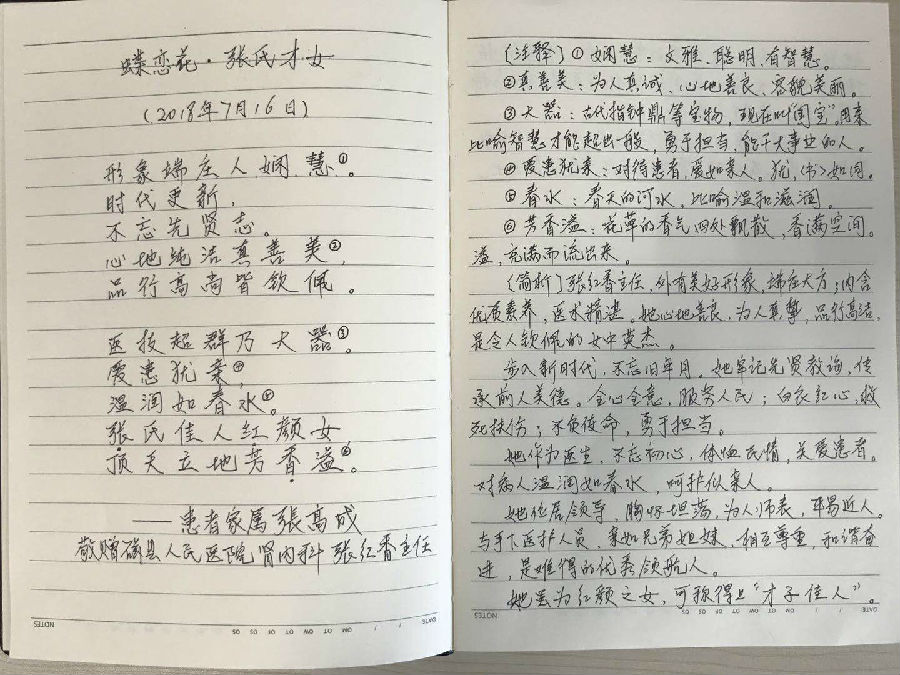 蝶恋花·张氏才女
(2018年7月16日)
形象端庄人娴慧①。
时代更新,
不忘先贤志。
心地纯洁真善美②,
品行高尚皆钦佩。
医技超群乃大器③。
爱患犹亲④,
温润如春水⑤。
张氏佳人红颜女
顶天立地芳香溢⑥。
——患者家属張高成
敬赠磁县人民医院肾内科张红香主任
NOTES
DATE
〔注释〕①娴慧:文雅、聪明、有智慧。
②真善美:为人真诚、心地善良、容貌美丽。
③大器:古代指钟鼎等宝物,现在叫“国宝”。用来
比喻智慧才能超出一般,勇于担当,能干大事业的人。
④爱患犹亲:对待患者,爱如亲人。犹,〈书〉如同。
⑤春水:春天的河水,比喻温和滋润。
⑥芳香溢:花草的香气四处飘散,香满空间。
溢,充满而流出来。
〔简析〕张红香主任,外有美好形象、端庄大方;内含
优质素养,医术精湛。她心地善良,为人真挚,品行高洁,
是令人钦佩的女中英杰。
步入新时代,不忘旧年月,她牢记先贤教诲,传
承前人美德。全心全意,服务人民;白衣红心,救
死扶伤;不负使命,勇于担当。
她作为医生,不忘初心,体恤民情,关爱患者。
对病人温润如春水,呵护似亲人。
她位居领导,胸怀坦荡,为人师表,平易近人。
与手下医护人员,亲如兄弟姐妹,相互尊重,和谐奋
进,是难得的优秀领航人。
她虽为红颜之女,可称得上“才子佳人”。
DATE
NOTES